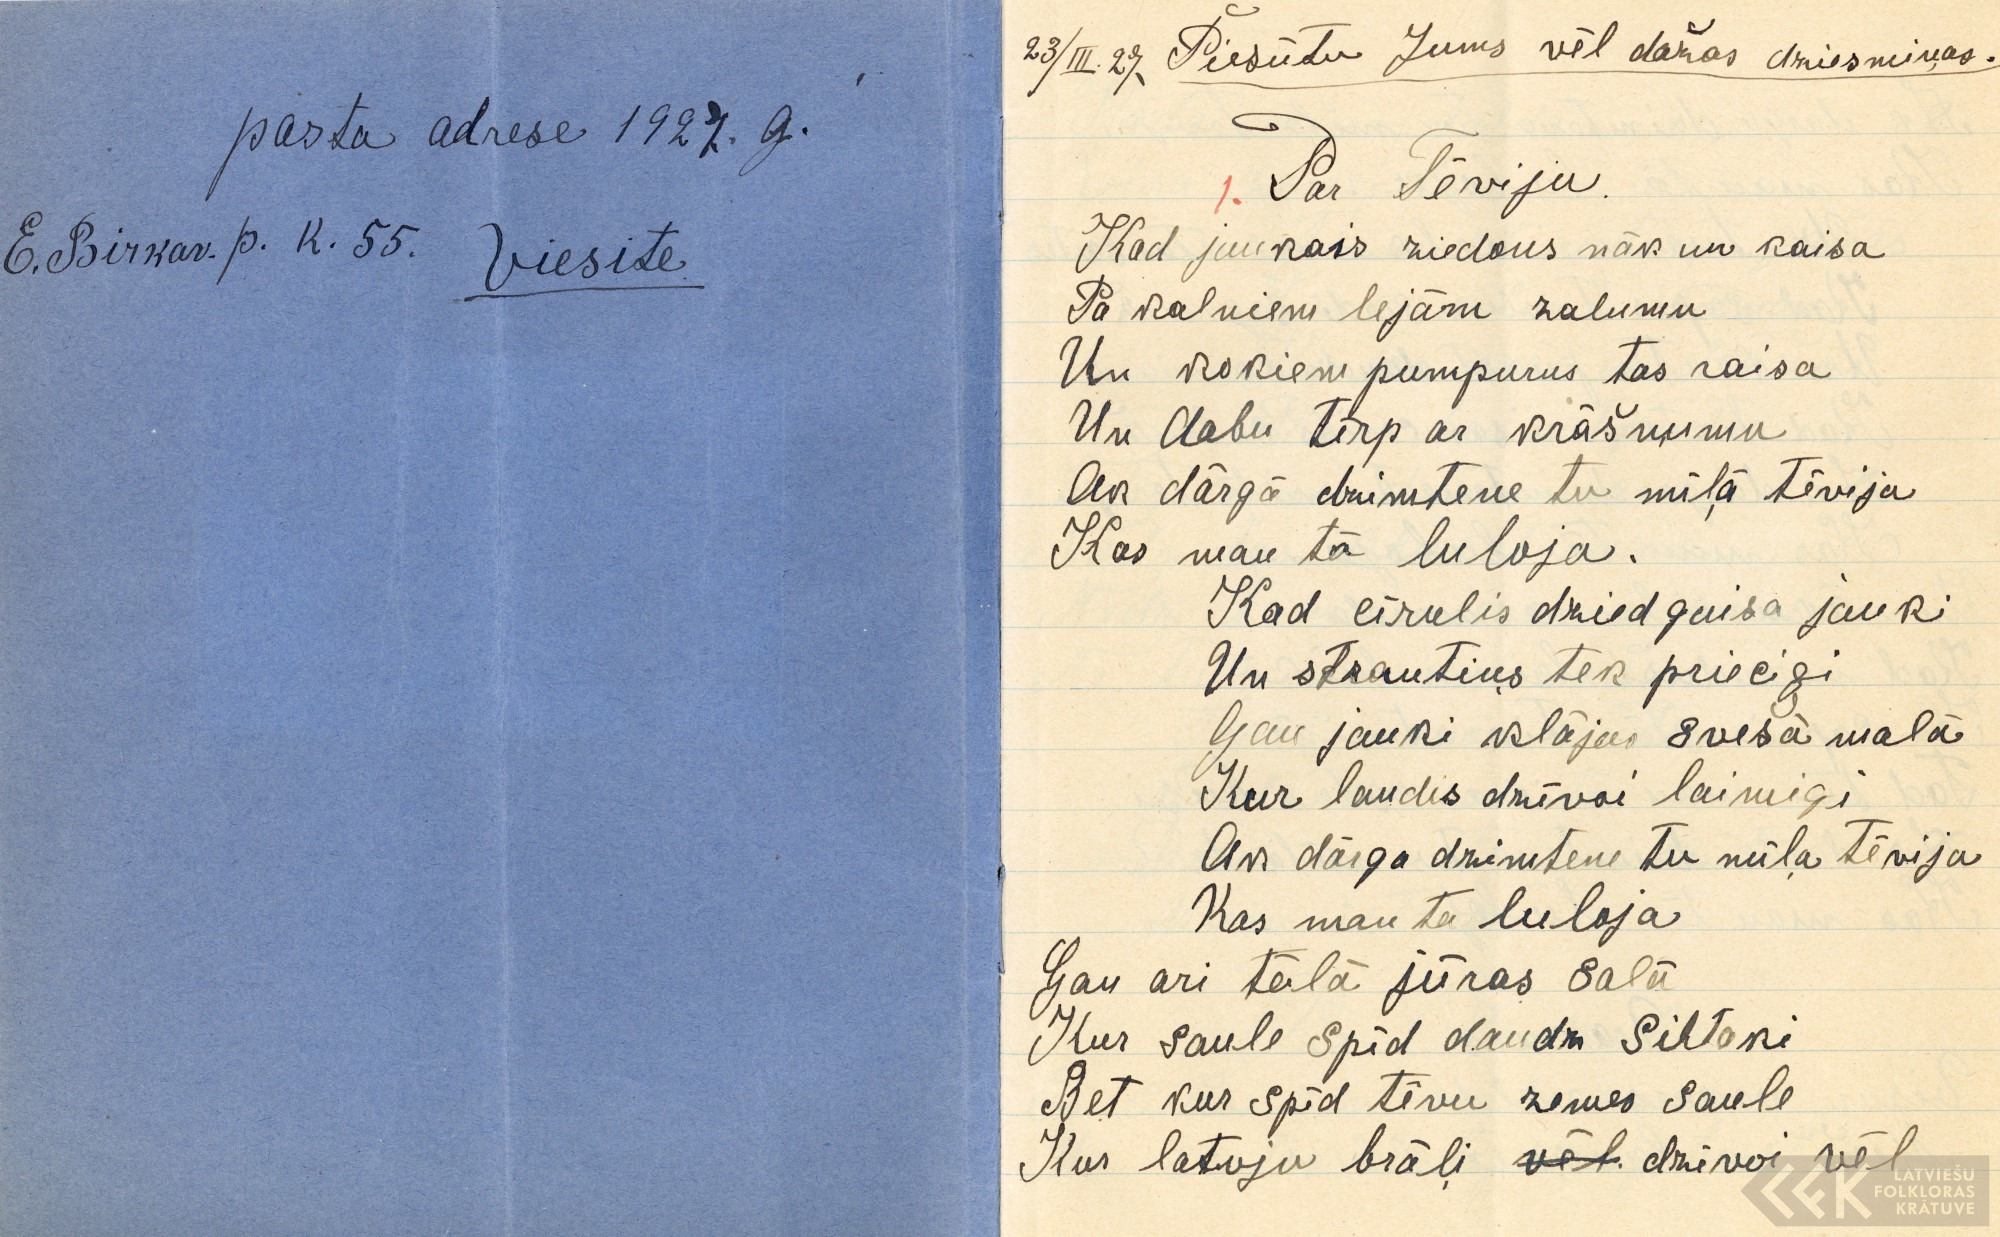 pasta adrese 1927. g.
E. Birkav. p. k. 55. Viesite.
23/III. 27. Piesūtu Jums vēl dažas dziesmiņas.
1. Par Tēviju.
Kad jaukais ziedons nāk un kaisa
Pa kalniem lejām zalumu
Un kokiem pumpurus tas raisa
Un dabu tērp ar krāšnumu
Ak dārgā dzimtene tu mīļā tēvija
Kas man tā luloja.
Kad cīrulis dzied gaisa jauki
Un strautiņs tek priecigi
Gan jauki klājas svesā malā
Kur laudis dzīvoi laimigi
Ak dārga dzimtene tu mīļa tēvija
Kas man ta luloja
Gan ari tālā jūras salā
Kur saule spīd daudz siltaki
Bet kur spīd tēvu zemes saule
Kur latvju brāļi vēl dzīvoi vēl
LATVIEŠU
FOLKLORAS
KRĀTUVE